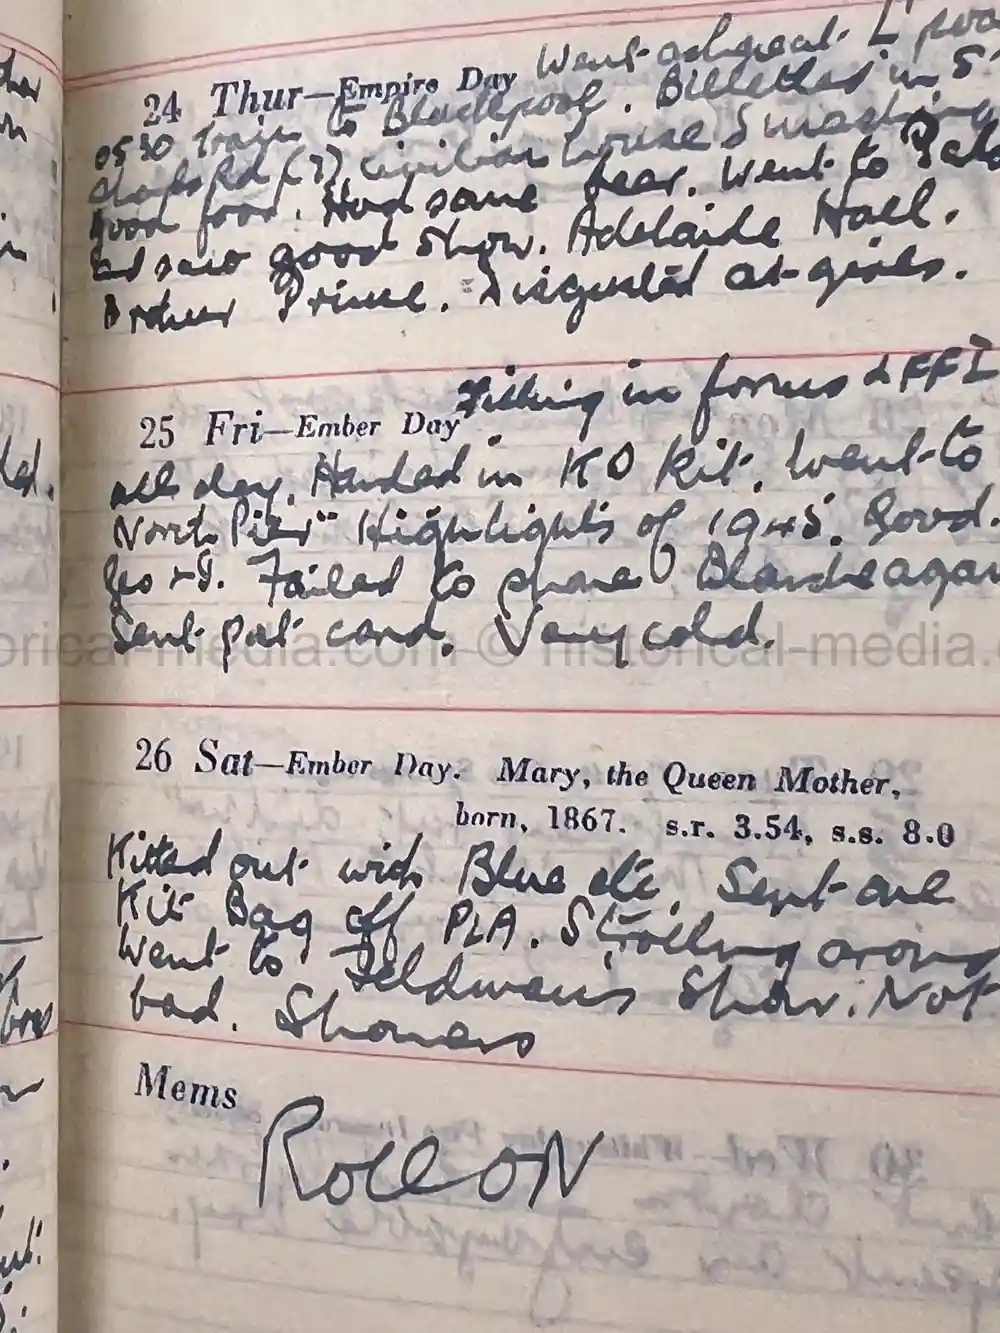 24 Thur—Empire Day Went ashgreat L'
0530 Train to Blackpool. Billetted in 5
Rd (?) civilian house Smashing
good food. Had some beer. Went to
and saw good show. Adelaide Hall.
Arthur Prince. Disgusted at girls.
25 Fri—Ember Day Filling in forms & FFI
all day. Handed in KD Kit. Went to
North Pier "Highlights of 1945. Good.
Geo + I. Failed to phone Blanche again
Sent pst card. Very cold.
26 Sat—Ember Day. Mary, the Queen Mother,
born, 1867. s.r. 3.54, s.s. 8.0
Kitted out with Blue etc. Sent one
Kit Bag off PLA. Strolling around
Went to Feldman's Show. Not
bad. Showers
Mems
ROLL ON
historical-media.com © historical-media.